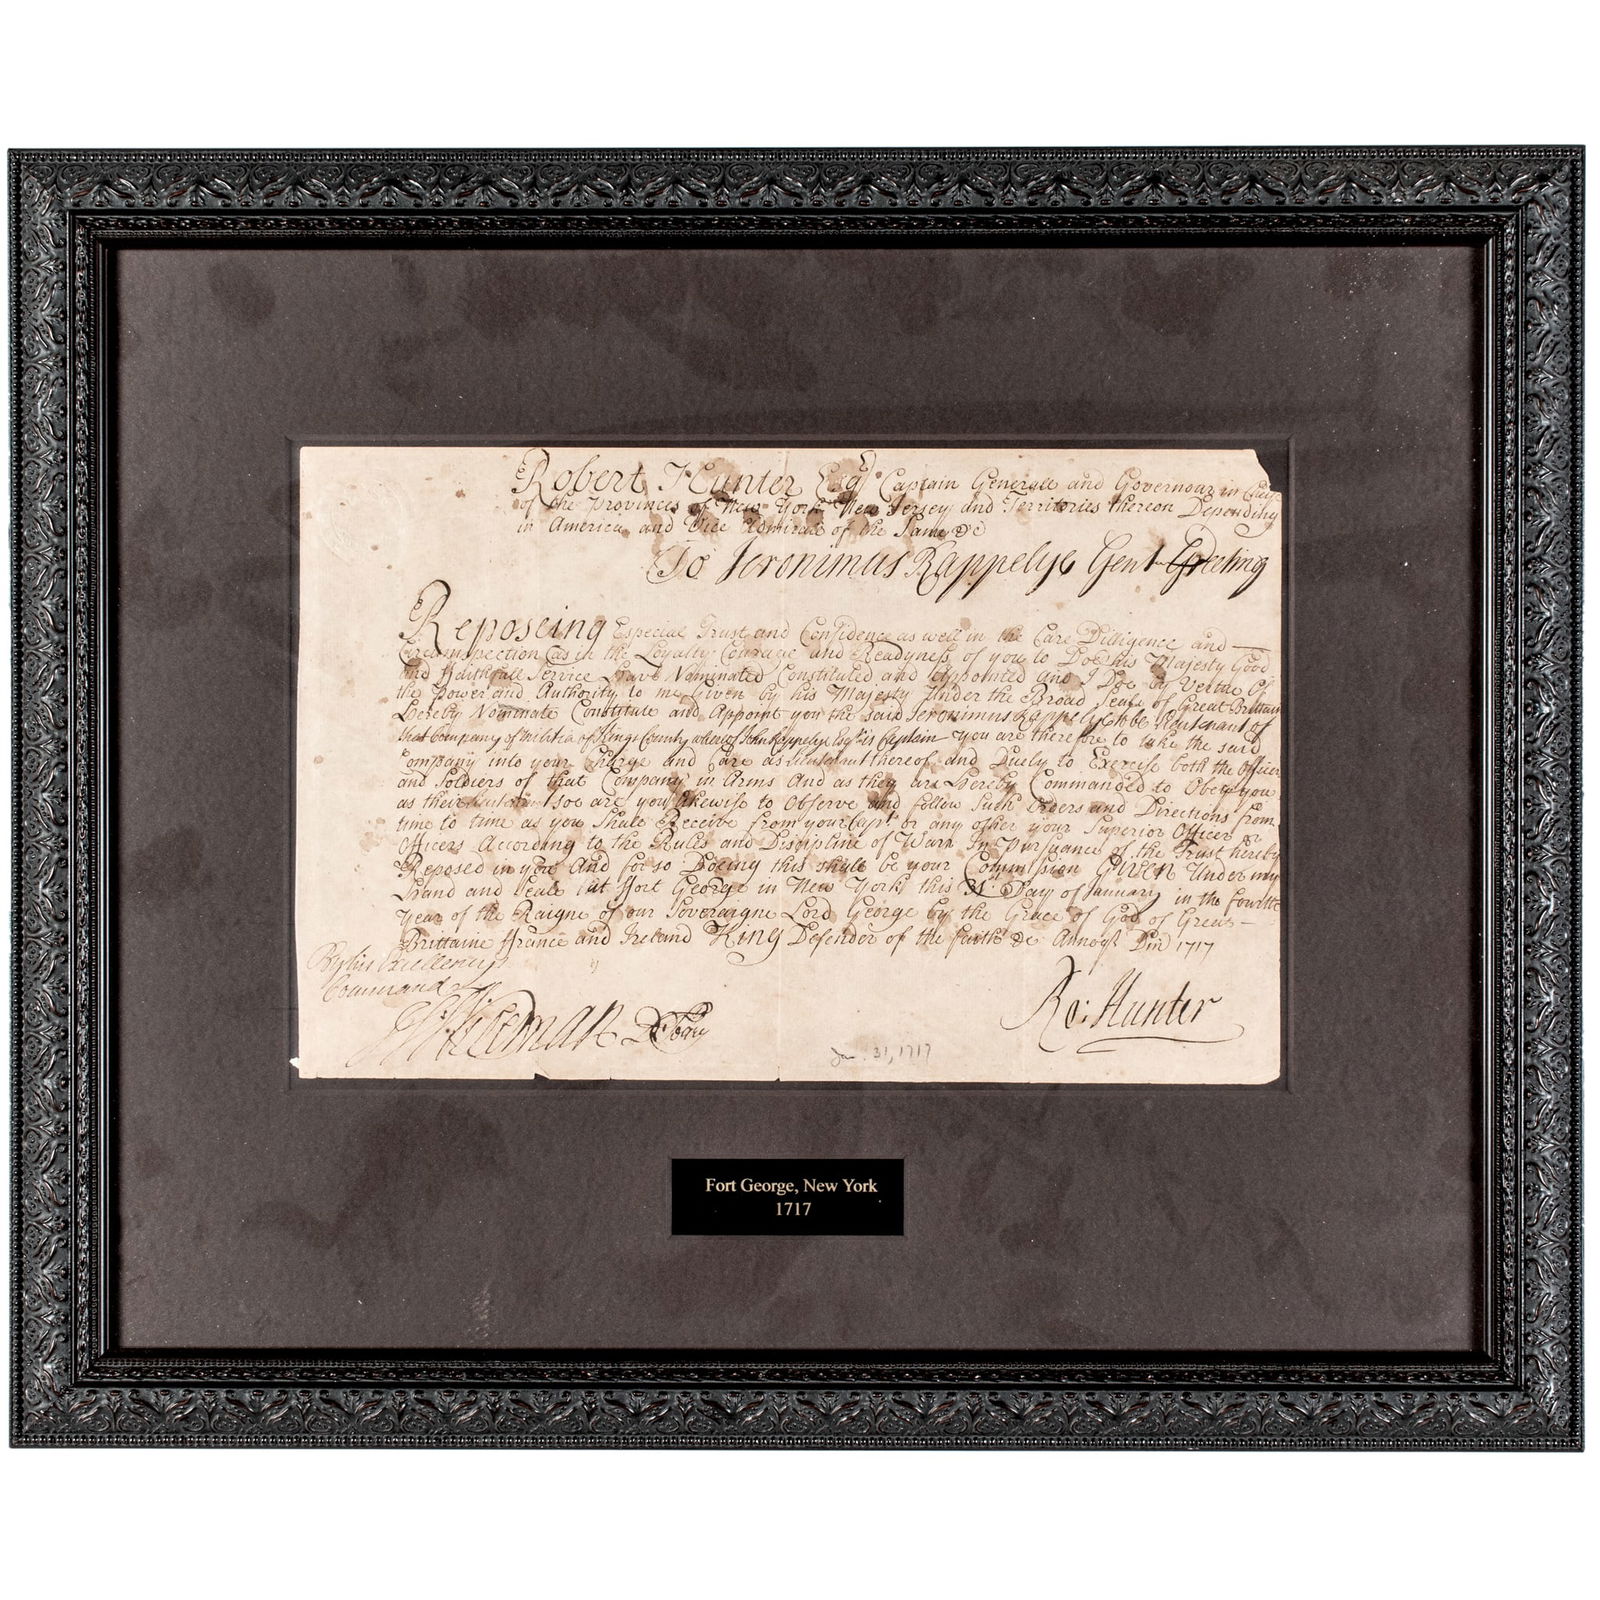 Robert Hunter Esqr. Captain Generall and Governour in Cheife
of the Provinces of New York New Jersey and Territories thereon Depending
in America and Vice Admirall of the Same &c
To Jeronimus Rappelye Gent Greeting
Reposeing Especial Trust and Confidence as well in the Care Dilligence and
Circumspection as in the Loyalty Courage and Readyness of you to Doe his Majesty Good
and Faithfull Service Have Nominated Constituted and Appointed and I Doe by Vertue Of
the Power and Authority to me Given by his Majesty Under the Broad Seale of Great Brittain
Hereby Nominate Constitute and Appoint you the said Jeronimus Rappelye to be Leiutenant of
that Company of Militia of Kings County whereof John Rappelye Esqr. is Captain you are therefore to take the said
Company into your Charge and Care as Lieutenant thereof and Duely to Exercise both the Officers
and Soldiers of that Company in Arms And as they are Hereby Commanded to Obey you
as their Lieutenant soe are you likewise to Observe and follow Such Orders and Directions from
time to time as you Shall Receive from your Capt. or any other your Superior Officer or
Officers According to the Rules and Discipline of Warr In Pursuance of the Trust hereby
Reposed in you And for so Doeing this shall be your Commission Given Under my
Hand and Seale att ffort George in New York this 31st. Day of January in the Fourth
Year of the Raigne of our Soveraigne Lord George by the Grace of God of Great
Brittaine ffrance and Ireland King Defender of the faith &c Annoq Dm 1717
By his Excellencys
Command
H Wileman D Secry
Ro: Hunter
Jan. 31, 1717
Fort George, New York
1717